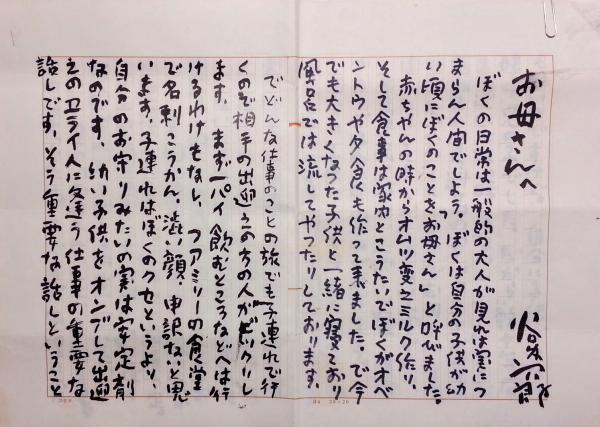 お母さんへ
ぼくの日常は一般的の大人が見れば実につ
まらん人間でしよう。ぼくは自分の子供が幼
い頃にぼくのことを「お母さん」と呼びました。
赤ちゃんの時からオムツ変えミルク作り、
そして食事は家内とこうたいでぼくがオベ
ントウや夕食も作って来ました。で今
でも大きくなった子供と一緒に寝ており
風呂では流してやったりしております。
でどんな仕事のことの旅でも子連れで行
くので相手の出迎えの方の人がビックリし
ます。まず一パイ飲むところなどへは行
けるわけもなし、ファミリーの食堂
で名刺こうかん。渋い顔、申訳ないと思
います。子連ればぼくのクセというより、
自分のお守りみたいの実は安定剤
なのです。幼い子供をオンブして出迎
えのエライ人に逢う仕事の重要な
話しです。そう重要な話しということ
B4 20×20